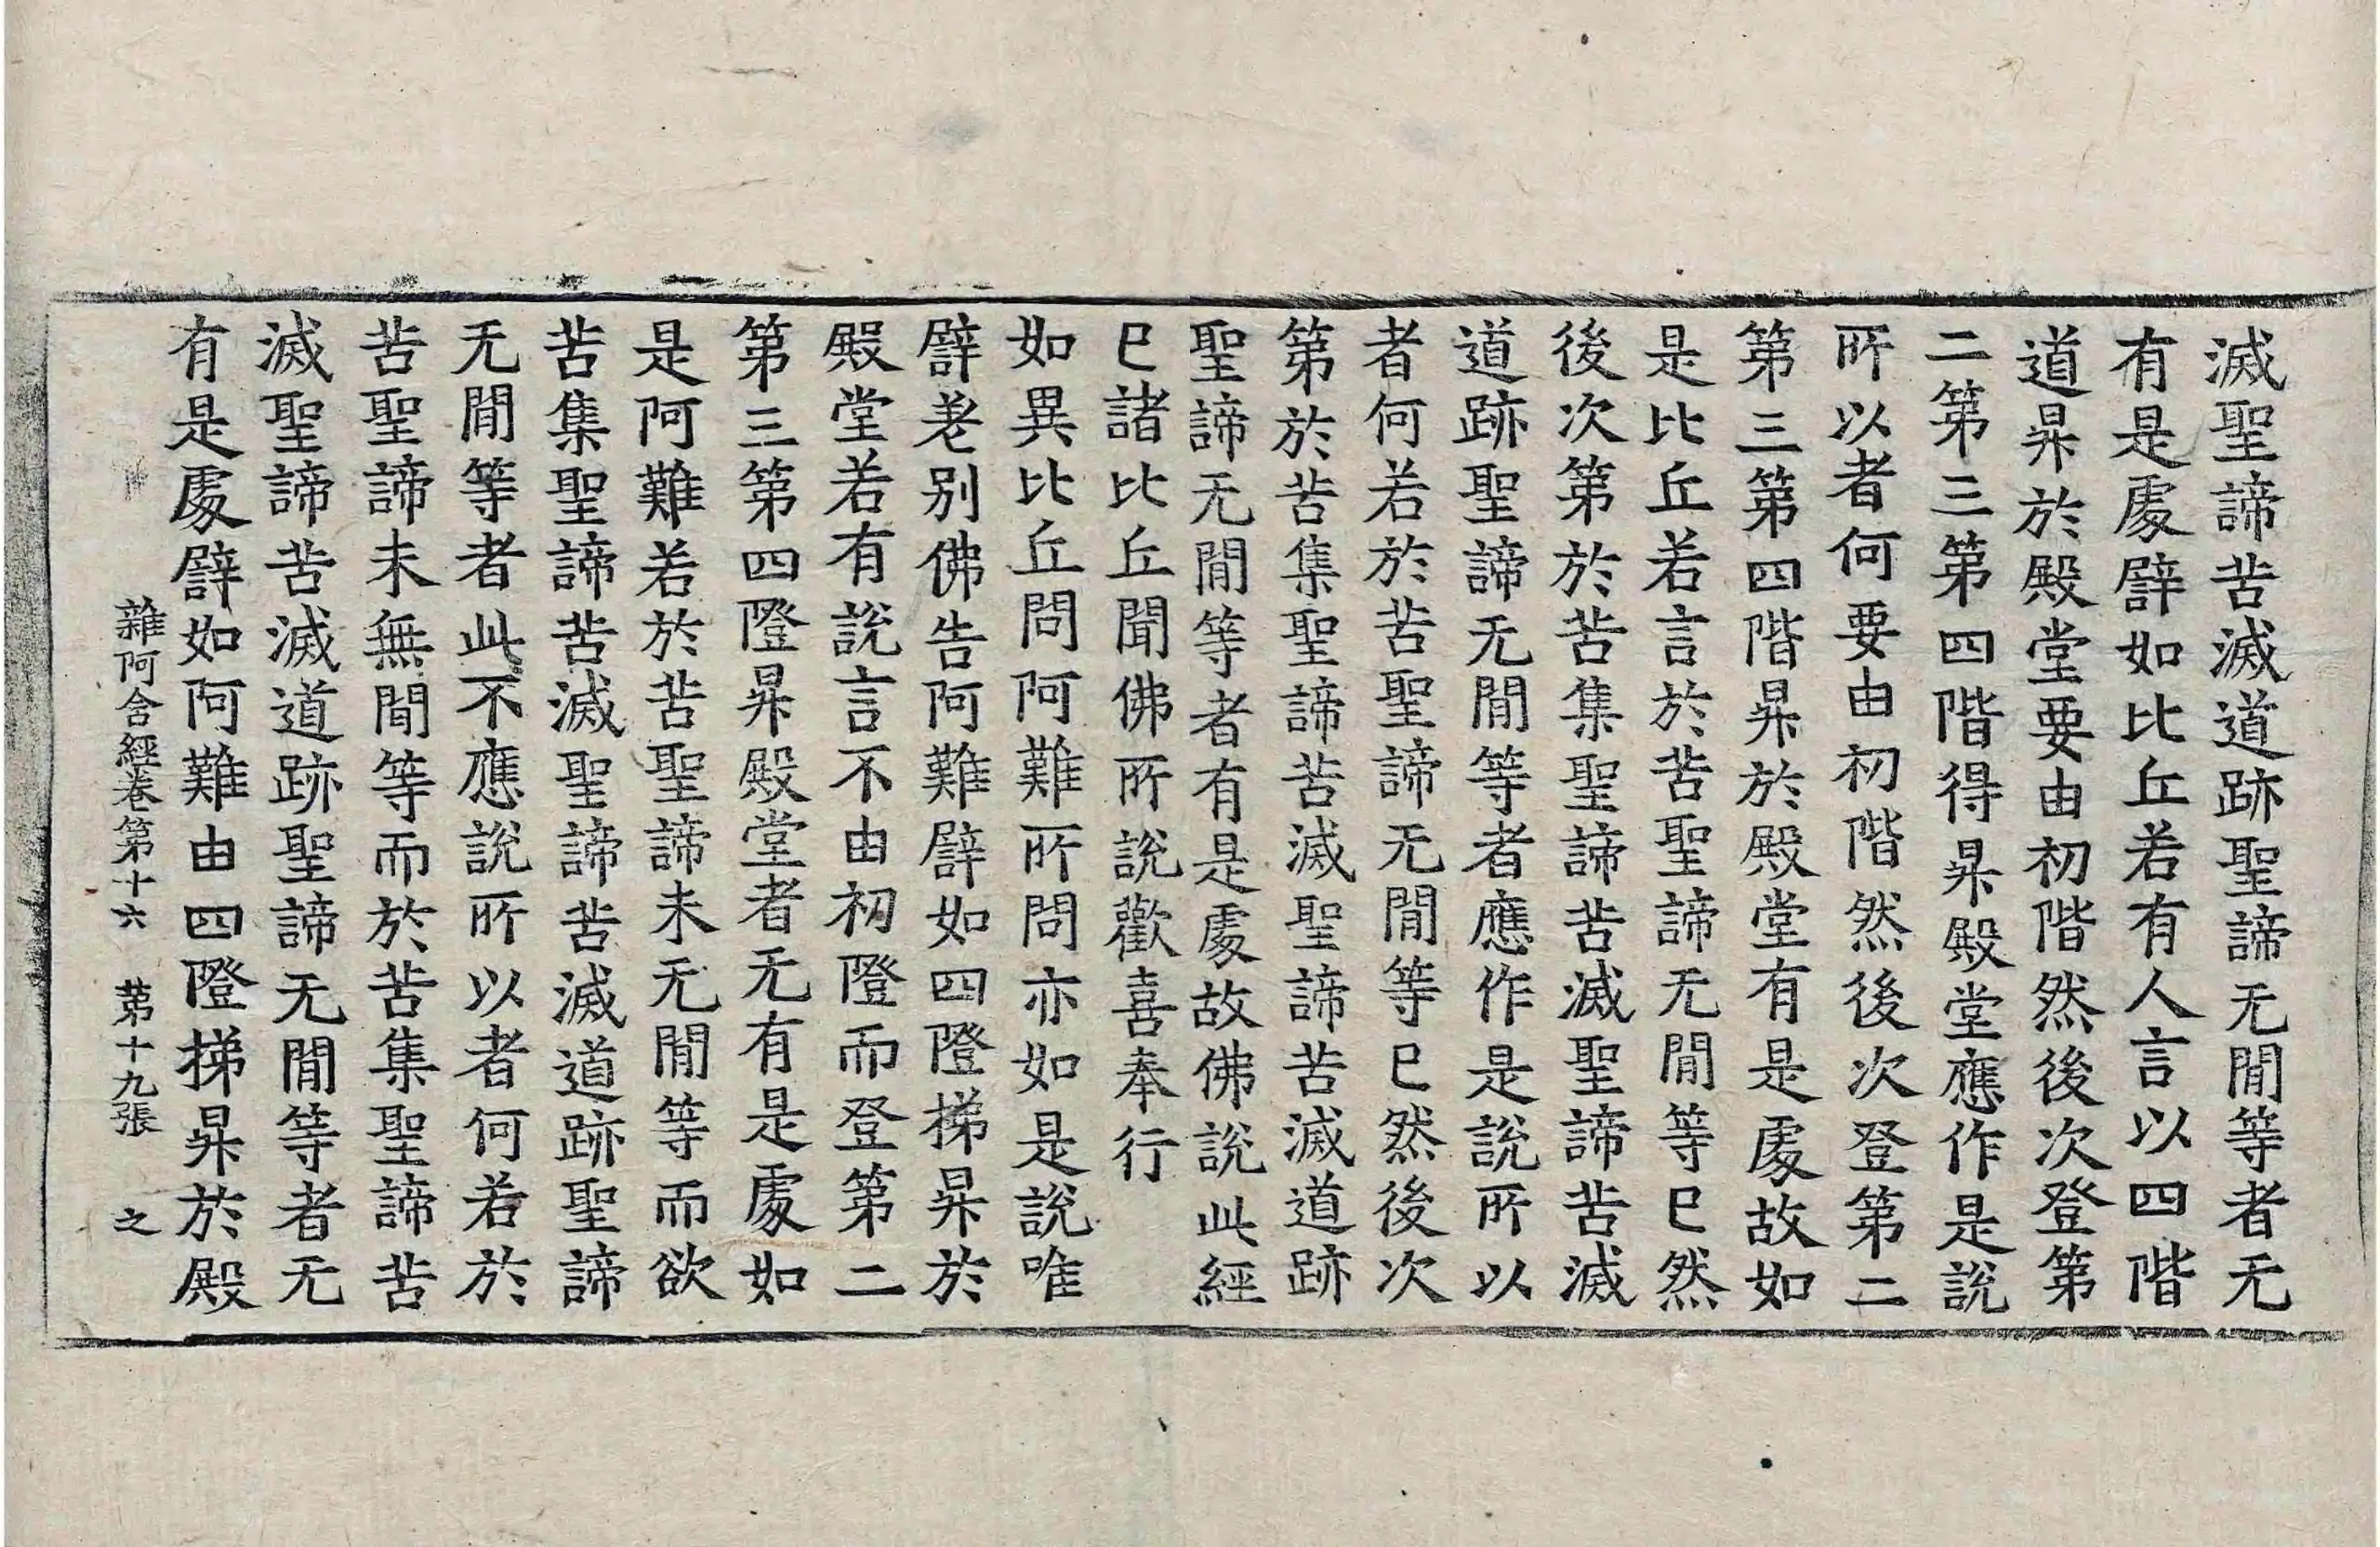 滅聖諦苦滅道跡聖諦无閒等者无
有是處譬如比丘若有人言以四階
道昇於殿堂要由初階然後次登第
二第三第四階得昇殿堂應作是說
所以者何要由初階然後次登第二
第三第四階昇於殿堂有是處故如
是比丘若言於苦聖諦无閒等已然
後次第於苦集聖諦苦滅聖諦苦滅
道跡聖諦无閒等者應作是說所以
者何若於苦聖諦无閒等已然後次
第於苦集聖諦苦滅聖諦苦滅道跡
聖諦无閒等者有是處故佛說此經
已諸比丘聞佛所說歡喜奉行
如異比丘問阿難所問亦如是說唯
譬差別佛告阿難譬如四隥梯昇於
殿堂若有說言不由初隥而登第二
第三第四隥昇殿堂者无有是處如
是阿難若於苦聖諦未无閒等而欲
苦集聖諦苦滅聖諦苦滅道跡聖諦
无閒等者此不應說所以者何若於
苦聖諦未無閒等而於苦集聖諦苦
滅聖諦苦滅道跡聖諦无閒等者无
有是處譬如阿難由四隥梯昇於殿
雜阿含經卷第十六 苐十九張 之